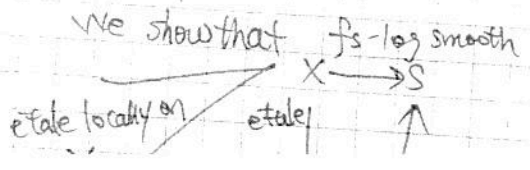 We show that fs-log smooth
X → S
etale locally on etale